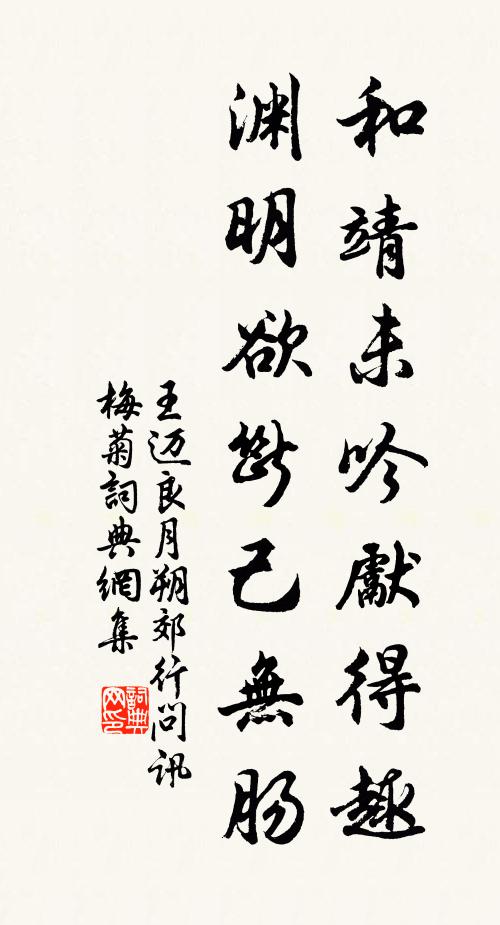 和靖未吟獻得趣
淵明欲斷已無腸
王迈良月朔郊行问讯
梅菊詞典網集
詞典网印